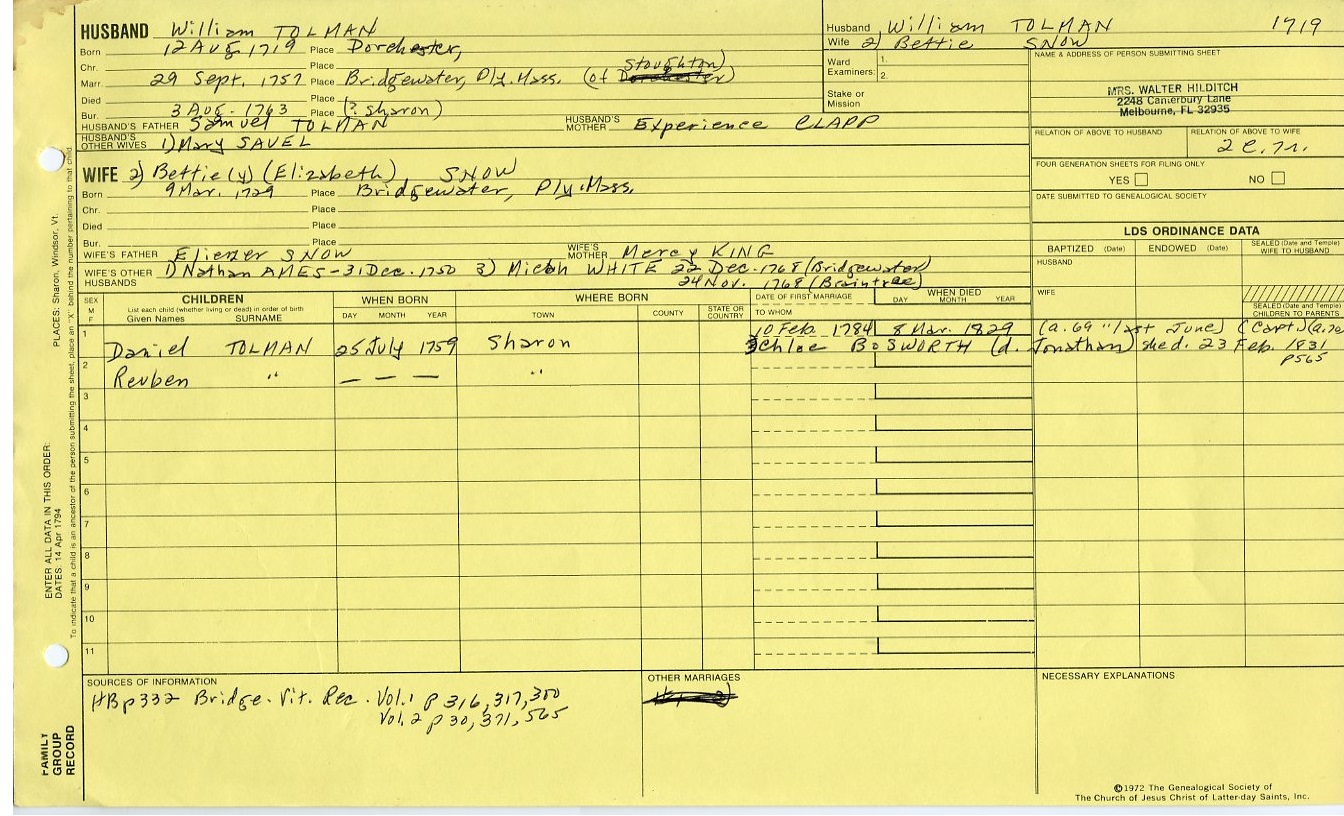 HUSBAND William TOLMAN
Born 12 Aug 1719 Place Dorchester,
Chr. Place Stoughton)
Marr. 29 Sept. 1757 Place Bridgewater, Ply. Mass. (of Dorchester)
Died Place
Bur. 3 Aug. 1763 Place (? Sharon)
HUSBAND'S FATHER Samuel TOLMAN HUSBAND'S MOTHER Experience CLAPP
HUSBAND'S OTHER WIVES 1) Mary SAVEL
WIFE 2) Bettie(y) (Elizabeth) SNOW
Born 9 Mar. 1729 Place Bridgewater, Ply. Mass.
Chr. Place
Died Place
Bur. Place
WIFE'S FATHER Eliezer SNOW WIFE'S MOTHER Mercy KING
WIFE'S OTHER HUSBANDS 1) Nathan AMES - 31 Dec. 1750 3) Micah WHITE 22 Dec. 1768 (Bridgewater)
24 Nov. 1768 (Braintree)
Husband William TOLMAN 1719
Wife 2) Bettie SNOW
Ward Examiners: 1.
2.
Stake or Mission
NAME & ADDRESS OF PERSON SUBMITTING SHEET
MRS. WALTER HILDITCH
2248 Canterbury Lane
Melbourne, FL 32935
RELATION OF ABOVE TO HUSBAND RELATION OF ABOVE TO WIFE
FOUR GENERATION SHEETS FOR FILING ONLY
YES NO
DATE SUBMITTED TO GENEALOGICAL SOCIETY
LDS ORDINANCE DATA
BAPTIZED (Date) ENDOWED (Date) SEALED (Date and Temple) WIFE TO HUSBAND
HUSBAND
WIFE
SEALED (Date and Temple) CHILDREN TO PARENTS
SEX M F CHILDREN WHEN BORN WHERE BORN DATE OF FIRST MARRIAGE WHEN DIED
List each child (whether living or dead) in order of birth
Given Names SURNAME DAY MONTH YEAR TOWN COUNTY STATE OR COUNTRY TO WHOM DAY MONTH YEAR
1 10 Feb. 1784 8 Mar. 1829 (a. 69 "last June) (Capt.)
Daniel TOLMAN 25 July 1759 Sharon Chloe BOSWORTH (d. Jonathan) she d. 23 Feb. 1831
p565
2 Reuben " — — — "
3
4
5
6
7
8
9
10
11
SOURCES OF INFORMATION
HB p332 Bridge. Vit. Rec. Vol. 1 p 316, 317, 300
Vol. 2 p 30, 371, 565
OTHER MARRIAGES
NECESSARY EXPLANATIONS
©1972 The Genealogical Society of
The Church of Jesus Christ of Latter-day Saints, Inc.
FAMILY GROUP RECORD
ENTER ALL DATA IN THIS ORDER:
DATES: 14 Apr 1794 PLACES: Sharon, Windsor, Vt.
To indicate that a child is an ancestor of the person submitting the sheet, place an "X" behind the number pertaining to that child.